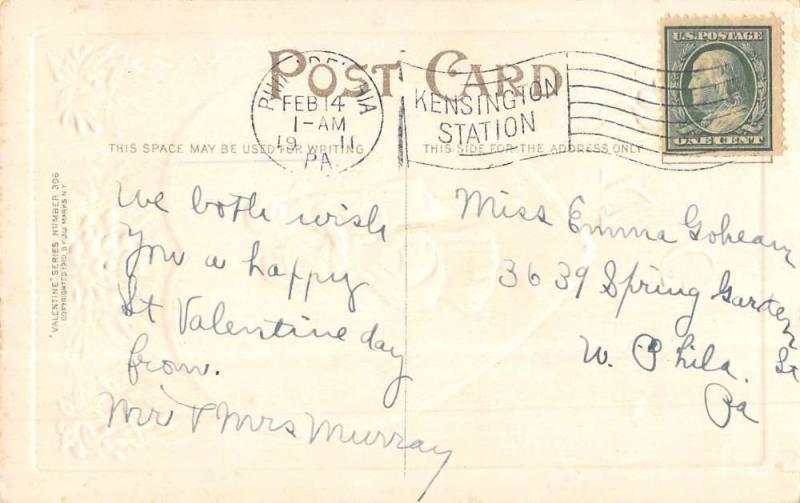 POST CARD
PHILADELPHIA
FEB 14
1-AM
19 11
PA.
KENSINGTON
STATION
U.S. POSTAGE
ONE CENT
THIS SPACE MAY BE USED FOR WRITING
THIS SIDE FOR THE ADDRESS ONLY
"VALENTINE" SERIES NUMBER 306
COPYRIGHTED 1910, BY JULIUS MARKS N.Y.
We both wish
you a happy
St Valentine day
from.
Mr & Mrs Murray
Miss Emma Gohean
3639 Spring Garden
St
W. Phila.
Pa